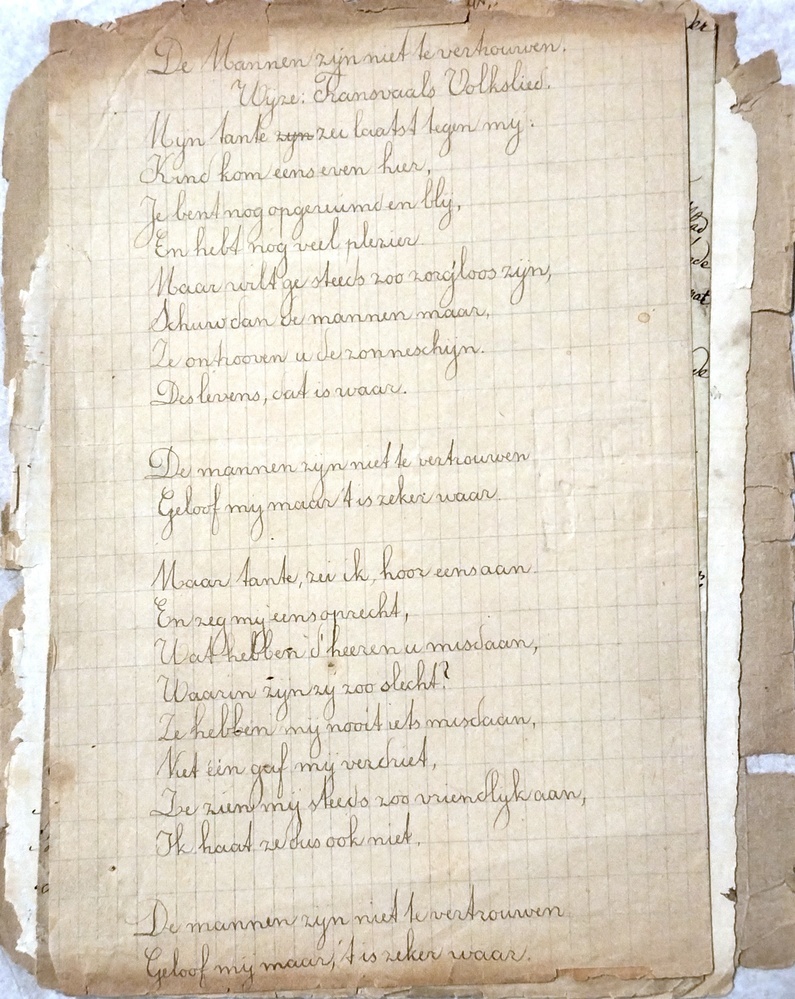 De Mannen zijn niet te vertrouwen.
Wyze: Transvaals Volkslied.
Myn tante zyn zei laatst tegen my:
Kind kom eens even hier,
Je bent nog opgeruimd en bly,
En hebt nog veel plezier
Maar wilt ge steeds zoo zorgloos zijn,
Schuw dan de mannen maar,
Ze ontrooven u de zonneschijn.
Des levens, dat is waar.
De mannen zyn niet te vertrouwen
Geloof my maar 't is zeker waar.
Maar tante, zei ik, hoor eens aan
En zeg my eens oprecht,
Wat hebben d'heeren u misdaan,
Waarin zyn zy zoo slecht?
Ze hebben my nooit iets misdaan,
Niet één gaf mij verdriet,
Ze zien mij steeds zoo vriendlyk aan,
Ik haat ze dus ook niet.
De mannen zyn niet te vertrouwen
Geloof mij maar, 't is zeker waar.